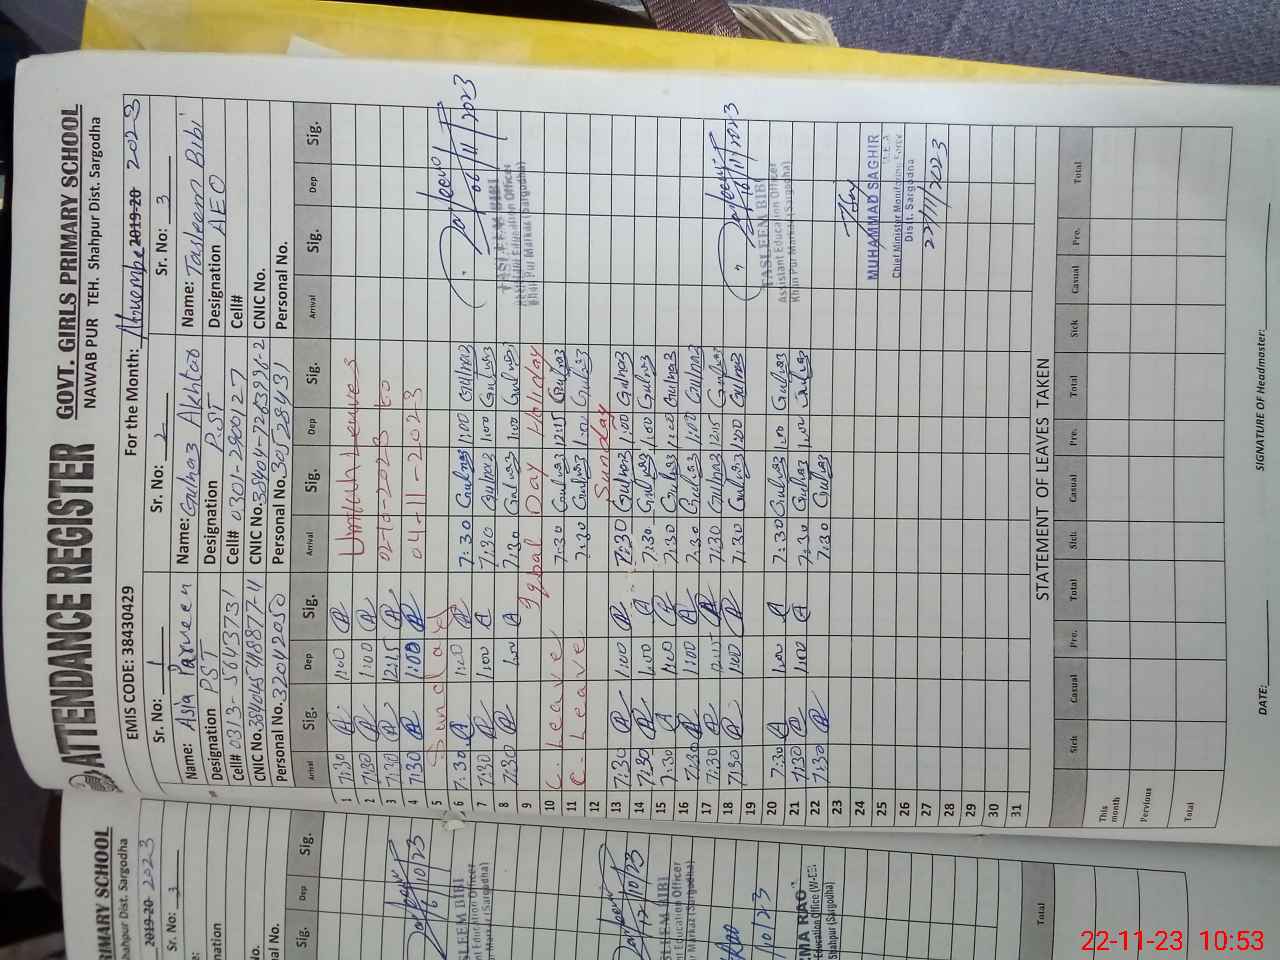 ATTENDANCE REGISTER
GOVT. GIRLS PRIMARY SCHOOL
NAWAB PUR TEH. Shahpur Dist. Sargodha
EMIS CODE: 38430429
For the Month: 2019-20 2023
Sr. No: 1
Sr. No: 2
Sr. No: 3
Name: Asia Parveen
Name: Gulnaz Akhtab
Name: Tasleem Bibi
Designation PST
Designation P.ST
Designation AEO
Cell# 0313-5643731
Cell# 0301-2900127
Cell#
CNIC No.
CNIC No.
CNIC No.
Personal No. 32042050
Personal No. 30528431
Personal No.
Arrival Sig. Dep Sig. Arrival Sig. Dep Sig. Arrival Sig. Dep Sig.
1 7:30 A 1:00 A Umrah Leaves
2 7:30 A 1:00 A 02-10-2023 to
3 7:30 A 12:15 A 04-11-2023
4 7:30 A 1:00 A
5 Sunday
6 7:30 A 1:00 A 7:30 Gulnaz 1:00 Gulnaz
7 7:30 A 1:00 A 7:30 Gulnaz 1:00 Gulnaz 06/11/2023
8 7:30 A 1:00 A 7:30 Gulnaz 1:00 Gulnaz TASLEEM BIBI
Assistant Education Officer
9 Iqbal Day Holiday
Khan Pur Markaz (Sargodha)
10 C. Leave 7:30 Gulnaz 12:15 Gulnaz
11 C. Leave 7:30 Gulnaz 1:00 Gulnaz
12 Sunday
13 7:30 A 1:00 A 7:30 Gulnaz 1:00 Gulnaz
14 7:30 A 1:00 A 7:30 Gulnaz 1:00 Gulnaz
15 7:30 A 1:00 A 7:30 Gulnaz 1:00 Gulnaz
16 7:30 A 1:00 A 7:30 Gulnaz 1:00 Gulnaz
17 7:30 A 12:15 A 7:30 Gulnaz 12:15 Gulnaz
18 7:30 A 1:00 A 7:30 Gulnaz 1:00 Gulnaz 16/11/2023
TASLEEM BIBI
Assistant Education Officer
Khan Pur Markaz (Sargodha)
20 7:30 A 1:00 A 7:30 Gulnaz 1:00 Gulnaz
21 7:30 A 1:00 A 7:30 Gulnaz 1:00 Gulnaz
22 7:30 A 7:30 Gulnaz
23
24
25 MUHAMMAD SAGHIR
26 Chief Minister Monitoring Force
Distt. Sargodha
27 22/11/2023
28
29
30
31
STATEMENT OF LEAVES TAKEN
Sick Casual Pre. Total Sick Casual Pre. Total Sick Casual Pre. Total
This month
Pervious
Total
DATE:
SIGNATURE OF Headmaster:
PRIMARY SCHOOL
Shahpur Dist. Sargodha
2019-20 2023
Sr. No: 3
Sig. Dep Sig.
/10/23
TASLEEM BIBI
Education Officer
Markaz (Sargodha)
12/10/23
TASLEEM BIBI
Education Officer
Markaz (Sargodha)
/10/23
RAO
Education Office (W-EE)
Shahpur (Sargodha)
Total
22-11-23 10:53